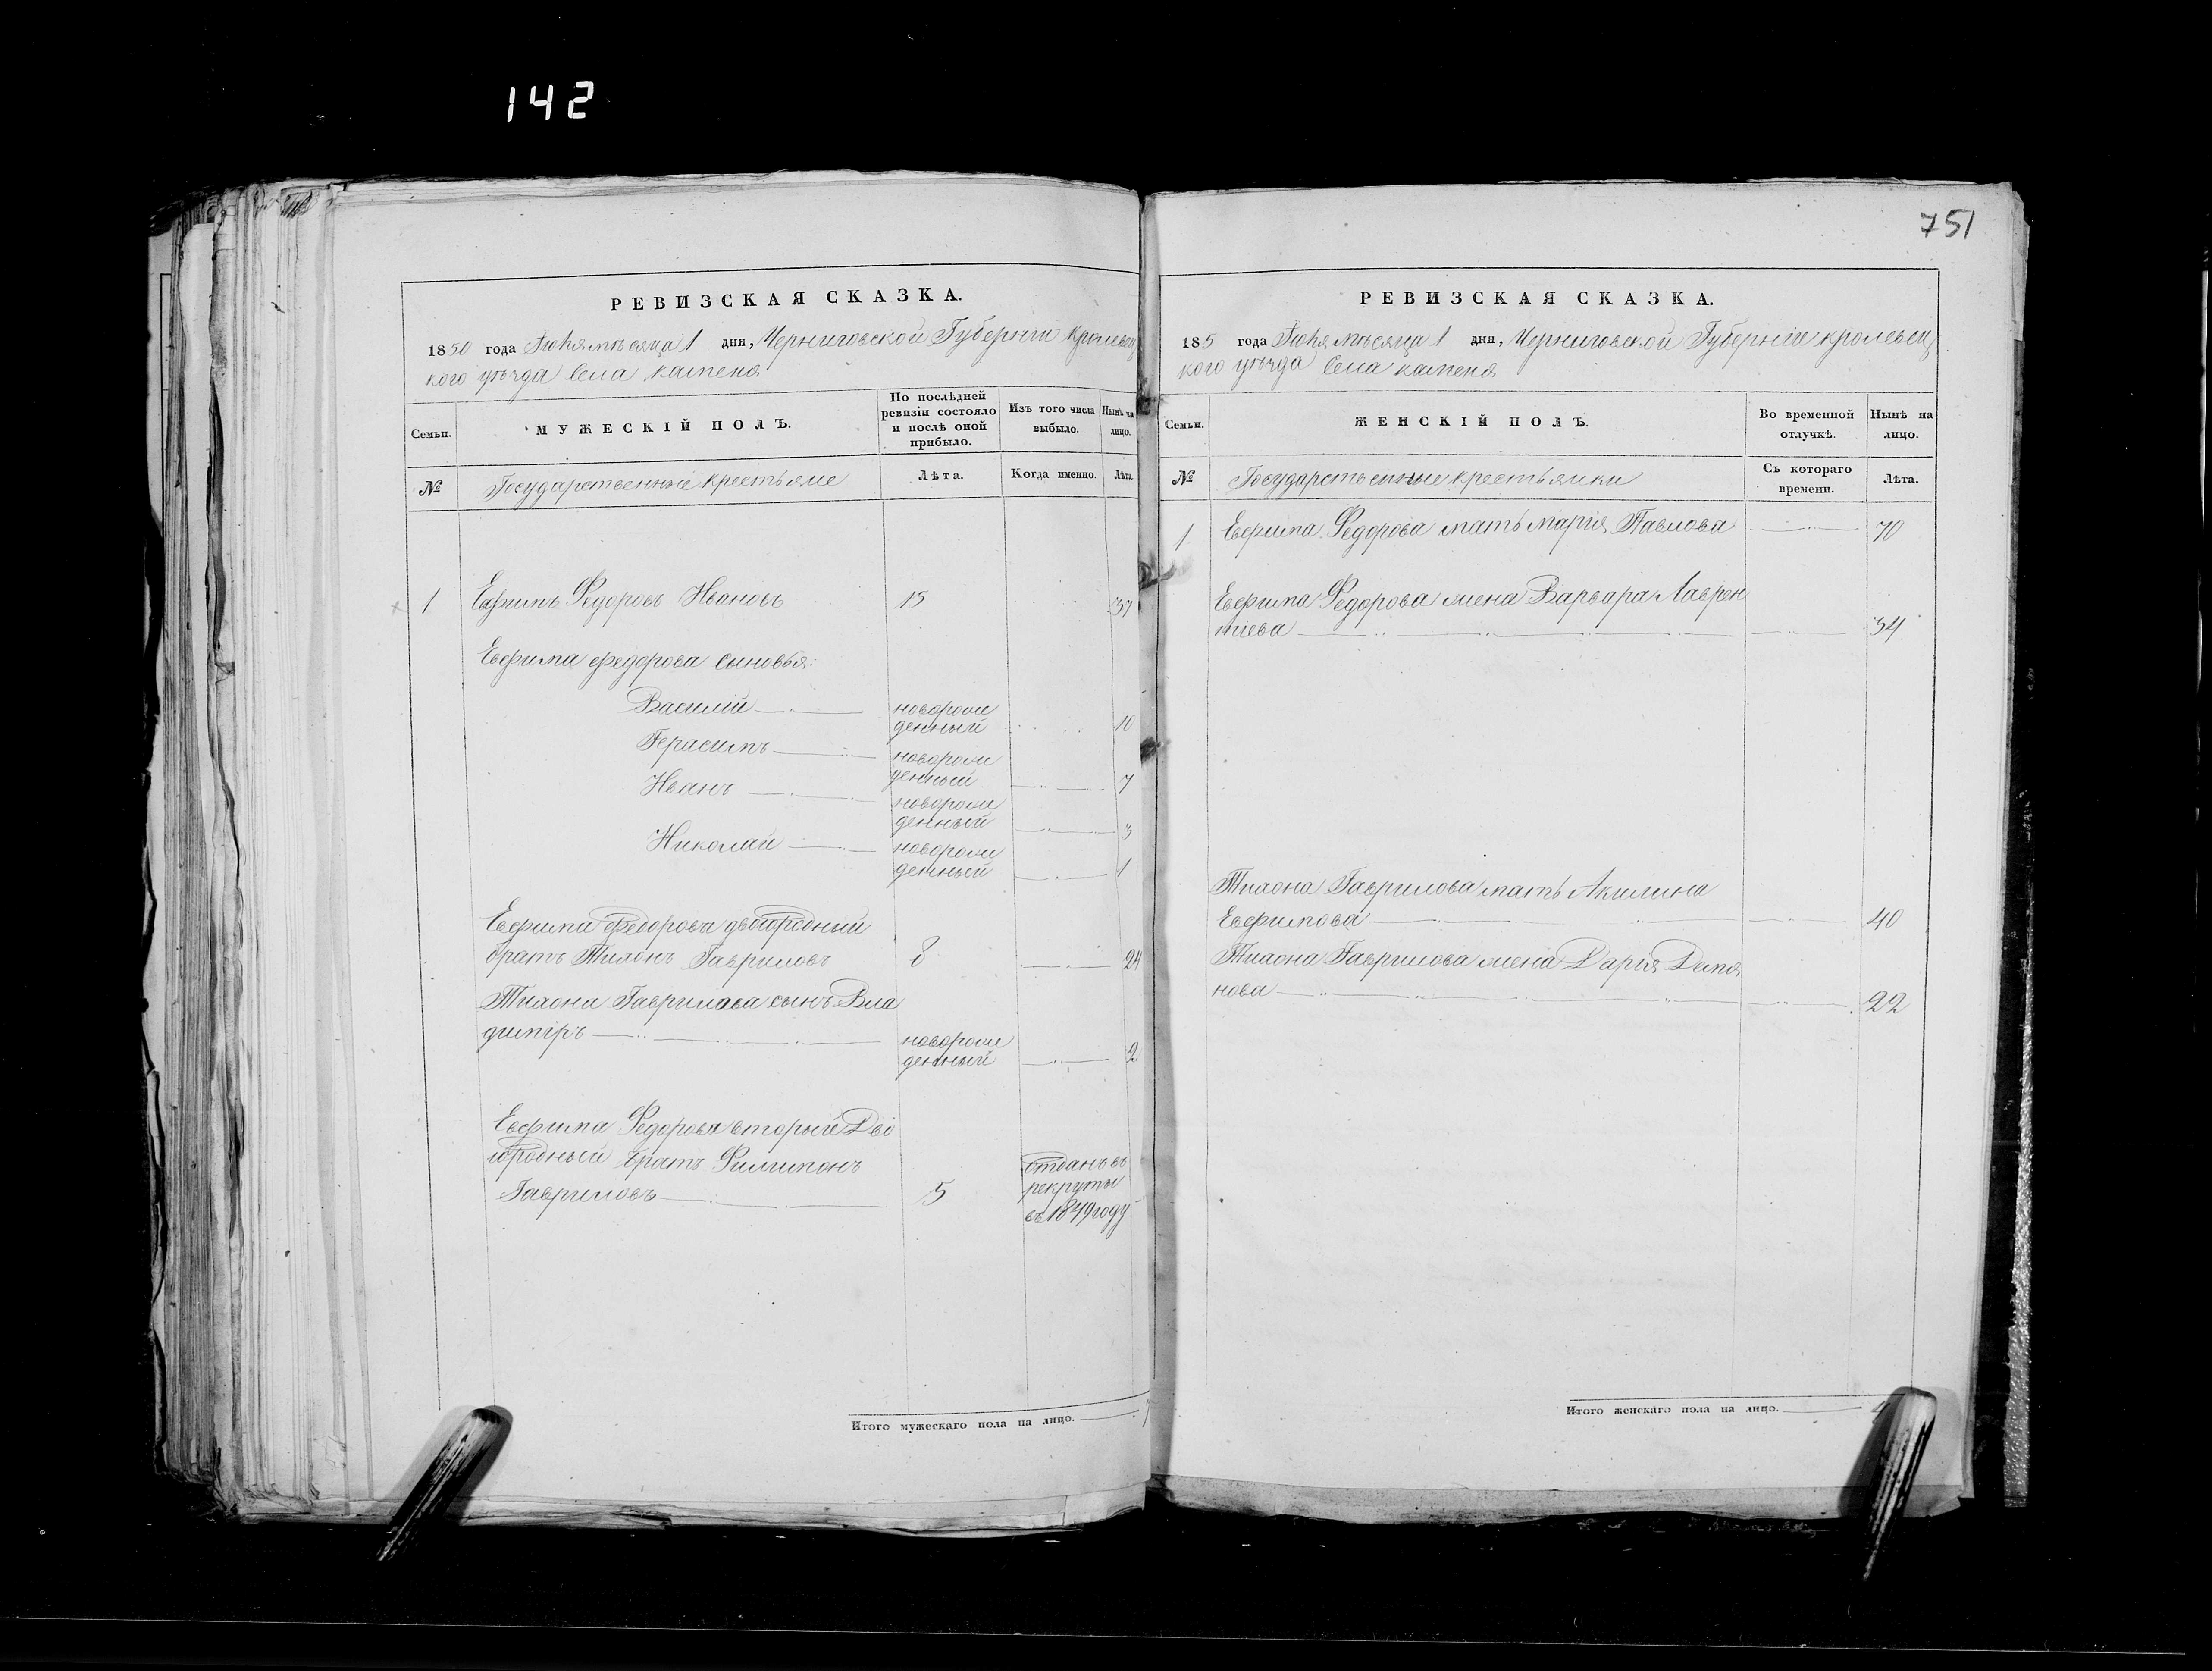 142
РЕВИЗСКАЯ СКАЗКА.
1850 года Іюня мѣсяца 1 дня, Черниговской Губерніи Кролевец
кого уѣзда Села Каменя
Семьи.
МУЖЕСКІЙ ПОЛЪ.
По послѣдней
ревизіи состояло
и послѣ оной
прибыло.
Изъ того числа
выбыло.
Нынѣ на
лицо.
№
Государственные крестьяне
Лѣта.
Когда именно.
Лѣта
1 Евфимъ Федоровъ Ивановъ 15 37
Евфима Федорова сыновья:
Василій новорож
денный 10
Герасимъ новорож
денный 7
Иванъ новорож
денный 3
Николай новорож
денный 1
Евфима Федорова двоюродный
братъ Тихонъ Гавриловъ 8 24
Тихона Гаврилова сынъ Вла
димiръ новорож
денный 2
Евфима Федорова вторый Дво
юродный братъ Филимонъ
Гавриловъ 5 отданъ въ
рекруты
въ 1849 году
Итого мужескаго пола на лицо.
751
РЕВИЗСКАЯ СКАЗКА.
185 года Іюня мѣсяца 1 дня, Черниговской Губерніи Кролевец
кого уѣзда Села Каменя
Семьи.
ЖЕНСКІЙ ПОЛЪ.
Во временной
отлучкѣ.
Нынѣ на
лицо.
№
Государственные крестьянки
Съ котораго
времени.
Лѣта.
1 Евфима Федорова мать Марія Павлова 70
Евфима Федорова жена Варвара Лаврен
тіева 34
Тихона Гаврилова мать Акилина
Евфимова 40
Тихона Гаврилова жена Дарія Демя
нова 22
Итого женскаго пола на лицо.